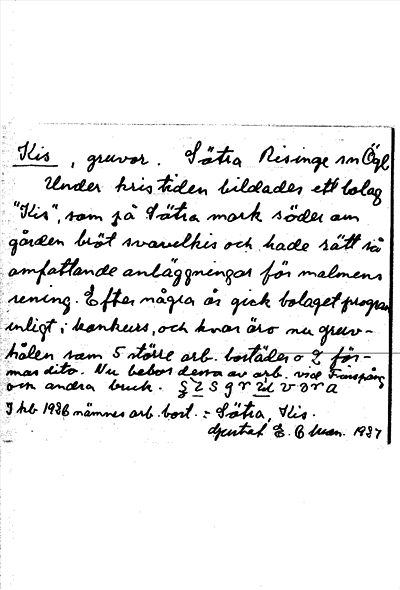 Kis, gruvor. Sätra Risinge sn Ögl
Under kristiden bildades ett bolag
"Kis", som på Sätra mark söder om
gården bröt svavelkis och hade rätt så
omfattande anläggningar för malmens
rening. Efter några år gick bolaget program
enligt i konkurs, och kvar äro nu gruv-
hålen samt 5 större arb. bostäder o 2 för-
mas dito. Nu bebos dessa av arb. vid Finspång
och andra bruk.
I kb 1926 nämnes arb. bost. = Sätra, Kis.
Gustaf E. 1937